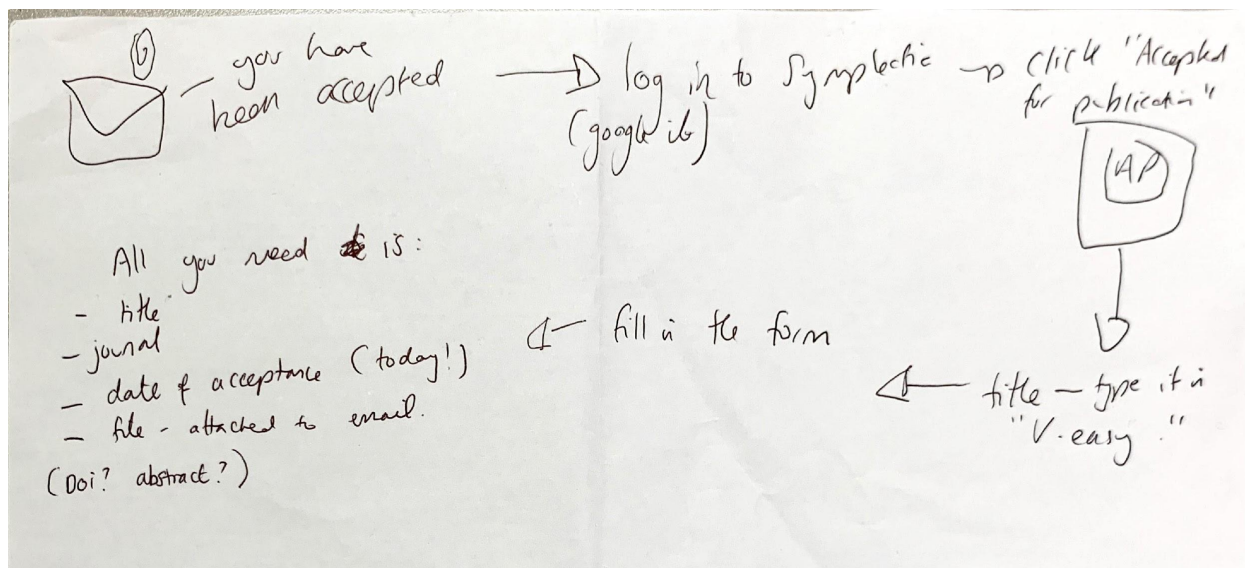 you have
been accepted
log in to Symplectic
(google it)
click "Accepted
for publication"
AP
title - type it in
"V. easy."
fill in the form
All you need is:
- title
- journal
- date of acceptance (today!)
- file - attached to email.
(Doi? abstract?)